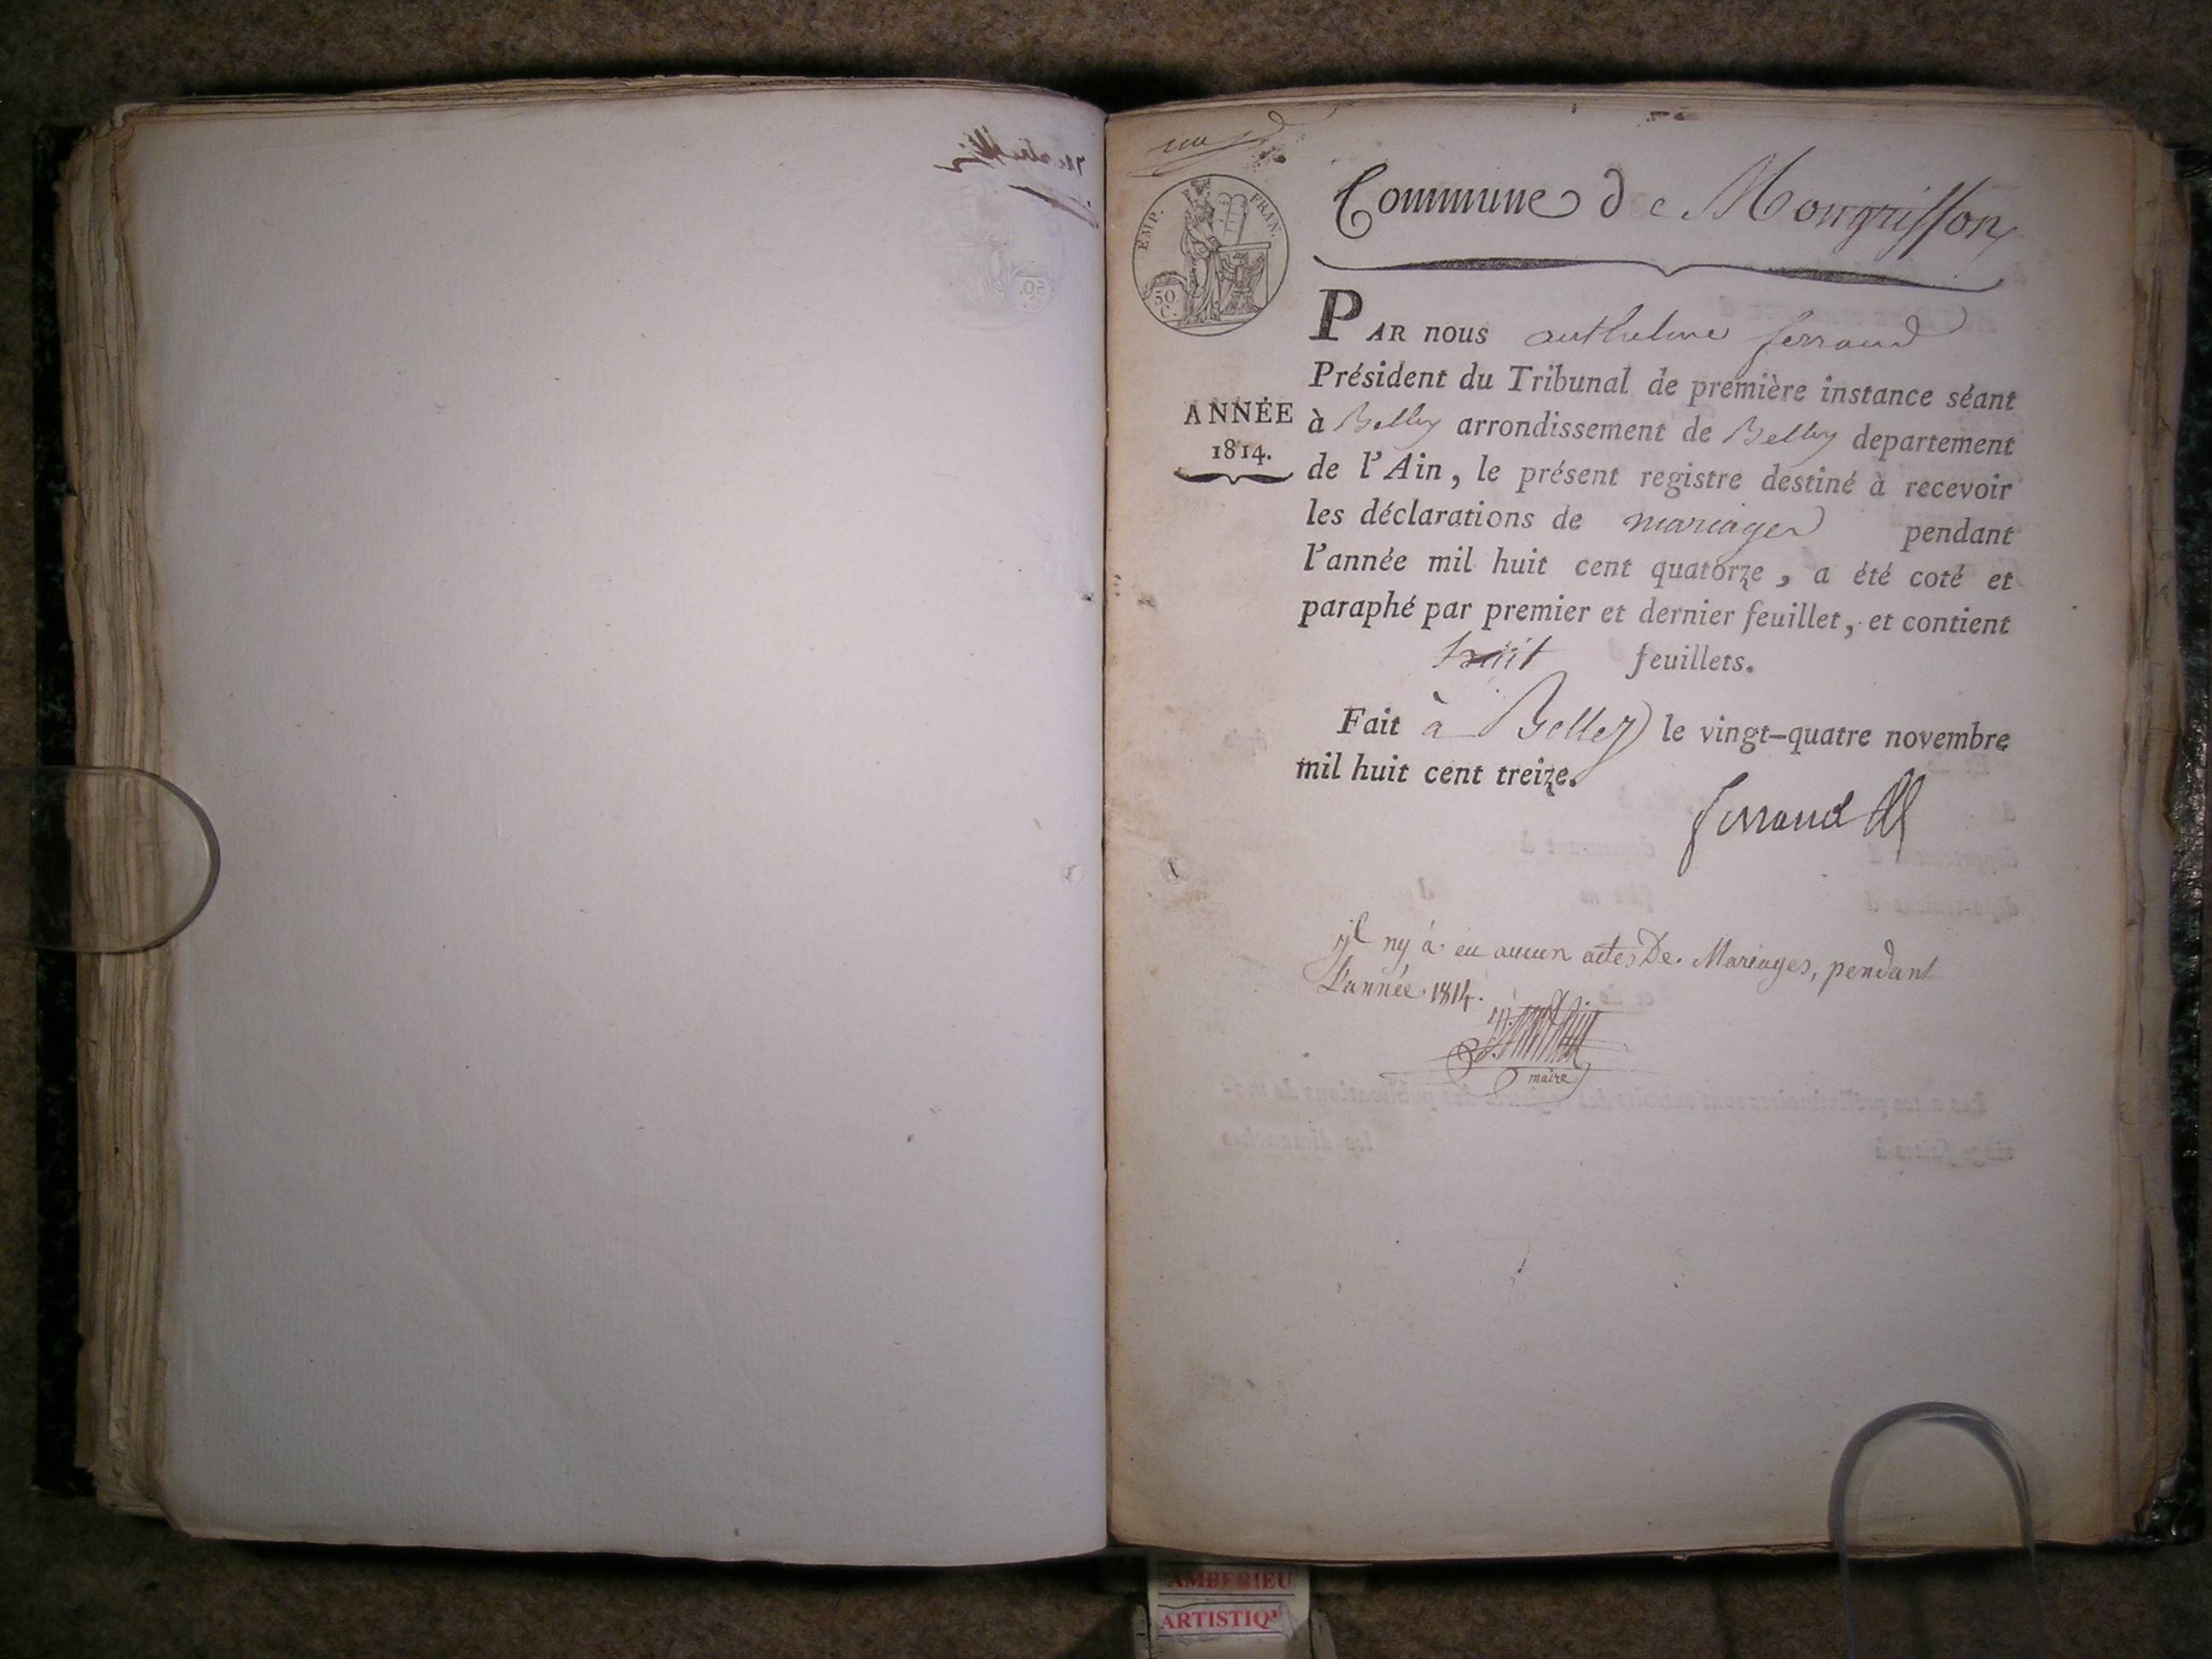 EMP. FRAN.
50.
C.
Commune de Mongrisson
PAR nous anthelme ferrand
Président du Tribunal de première instance séant
ANNÉE
1814.
à Belley arrondissement de Belley departement
de l'Ain, le présent registre destiné à recevoir
les déclarations de mariages pendant
l'année mil huit cent quatorze, a été coté et
paraphé par premier et dernier feuillet, et contient
huit feuillets.
Fait à Belley le vingt-quatre novembre
mil huit cent treize.
ferrand
yl ny à eu aucun actes De Mariages, pendant
L'année 1814.
maire
AMBERIEU
ARTISTIQ